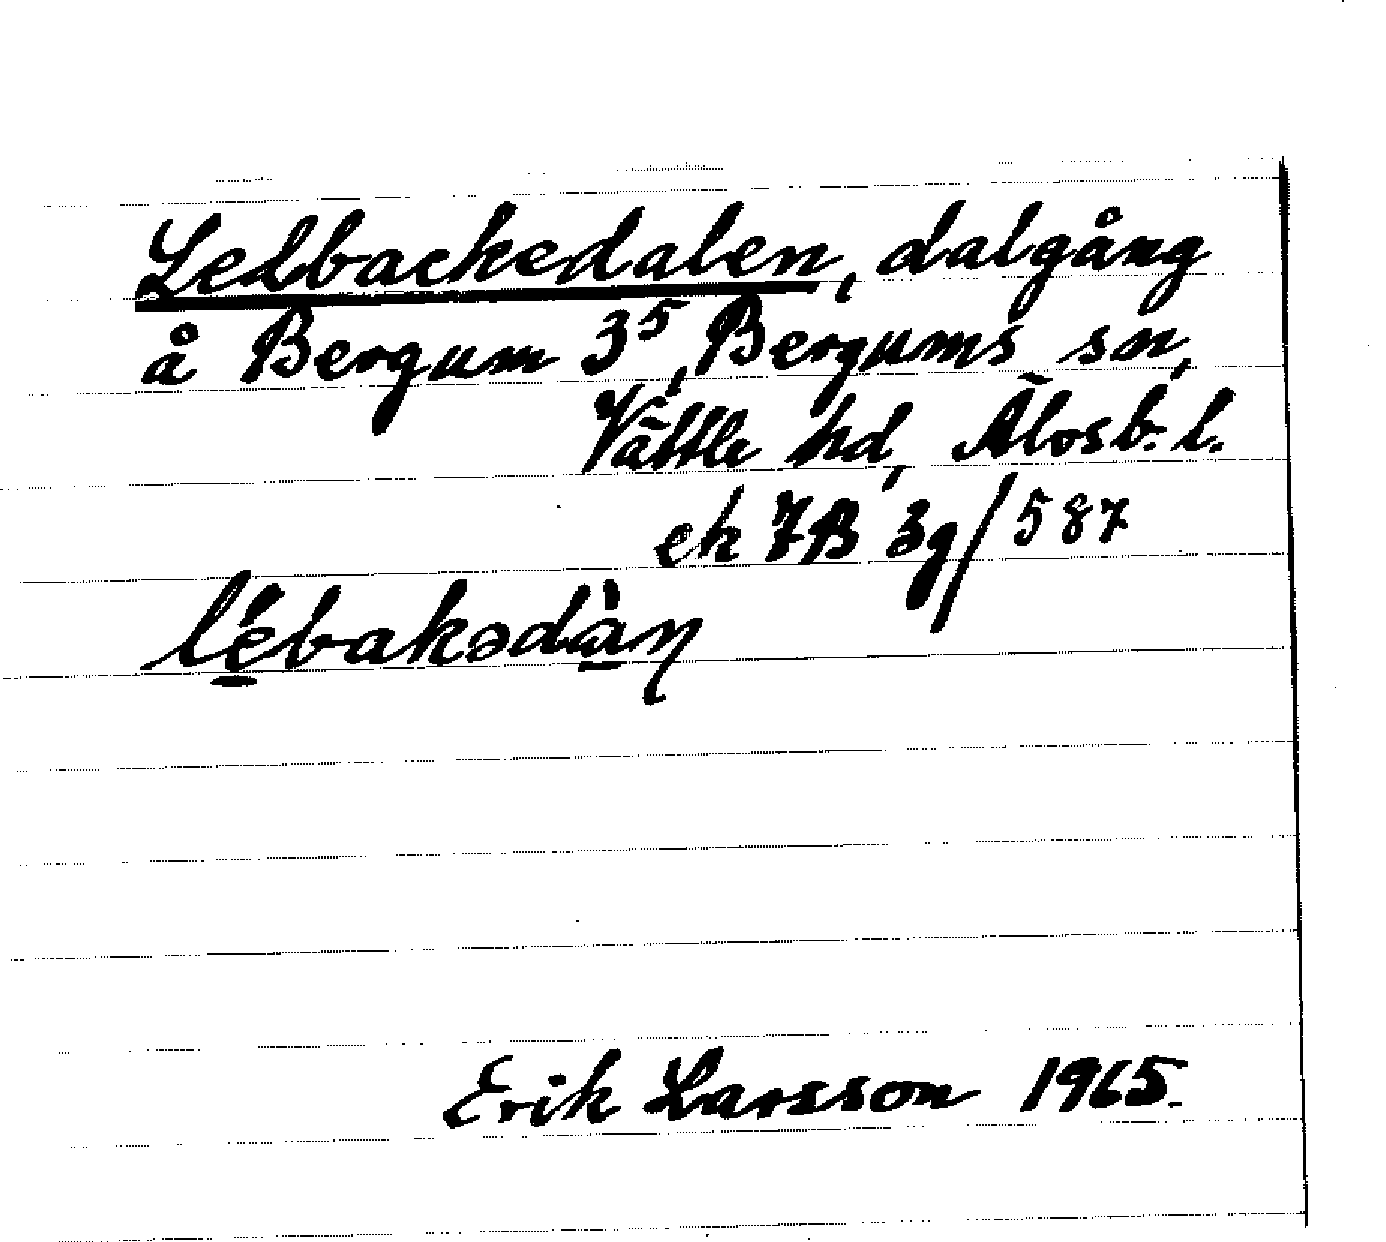 Ledbackedalen, dalgång
å Bergum 3⁵, Bergums sn,
Vättle hd, Älvsb. l.
ek 7B 3g/587
lébakədàn
Erik Larsson 1965.